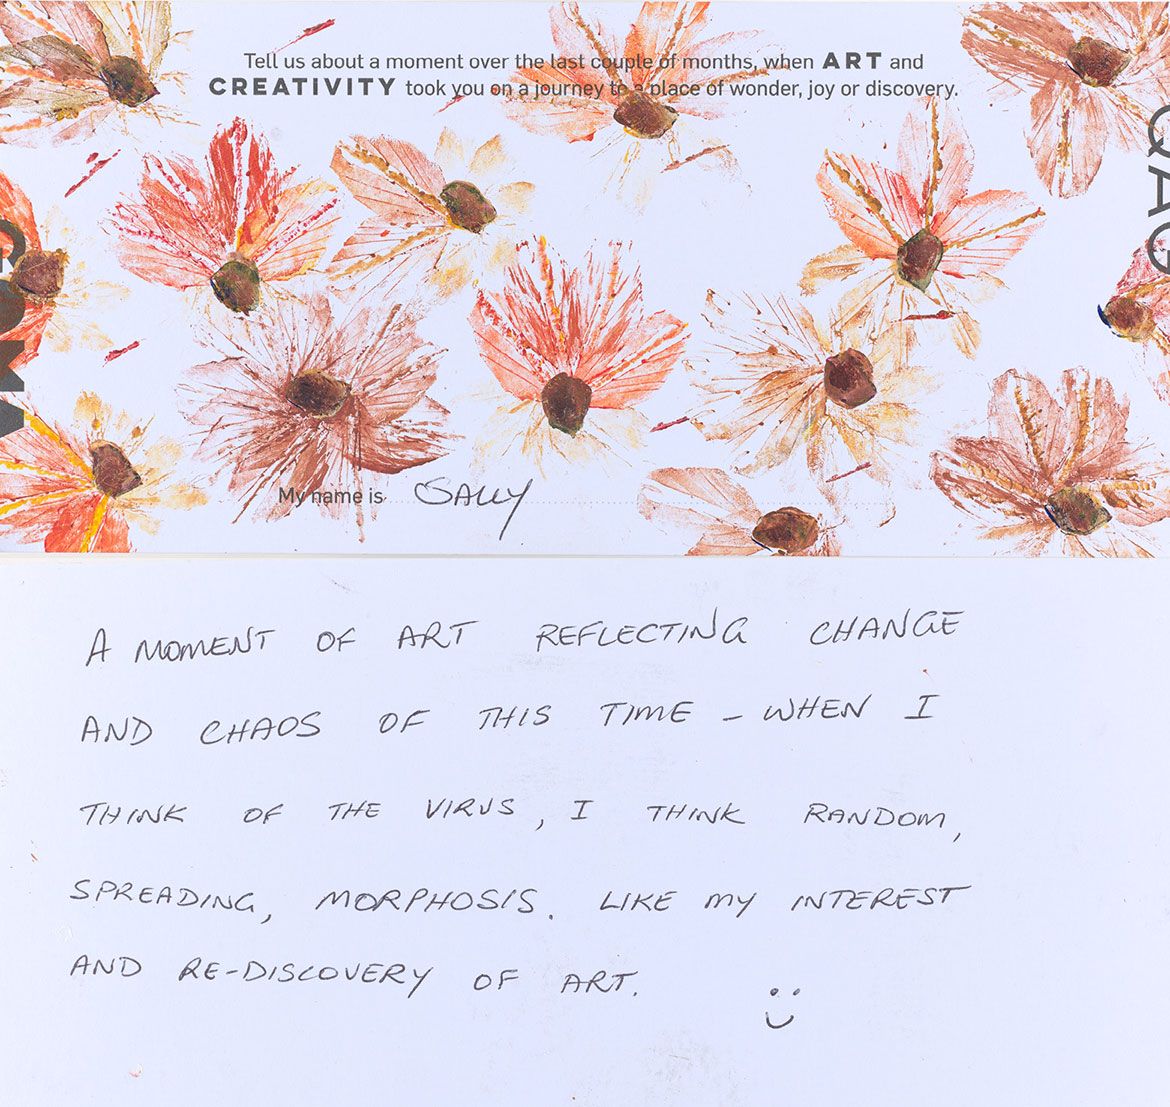 Tell us about a moment over the last couple of months, when ART and
CREATIVITY took you on a journey to a place of wonder, joy or discovery.
QAG
GOMA
My name is SALLY
A MOMENT OF ART REFLECTING CHANGE
AND CHAOS OF THIS TIME – WHEN I
THINK OF THE VIRUS, I THINK RANDOM,
SPREADING, MORPHOSIS. LIKE MY INTEREST
AND RE-DISCOVERY OF ART. :)